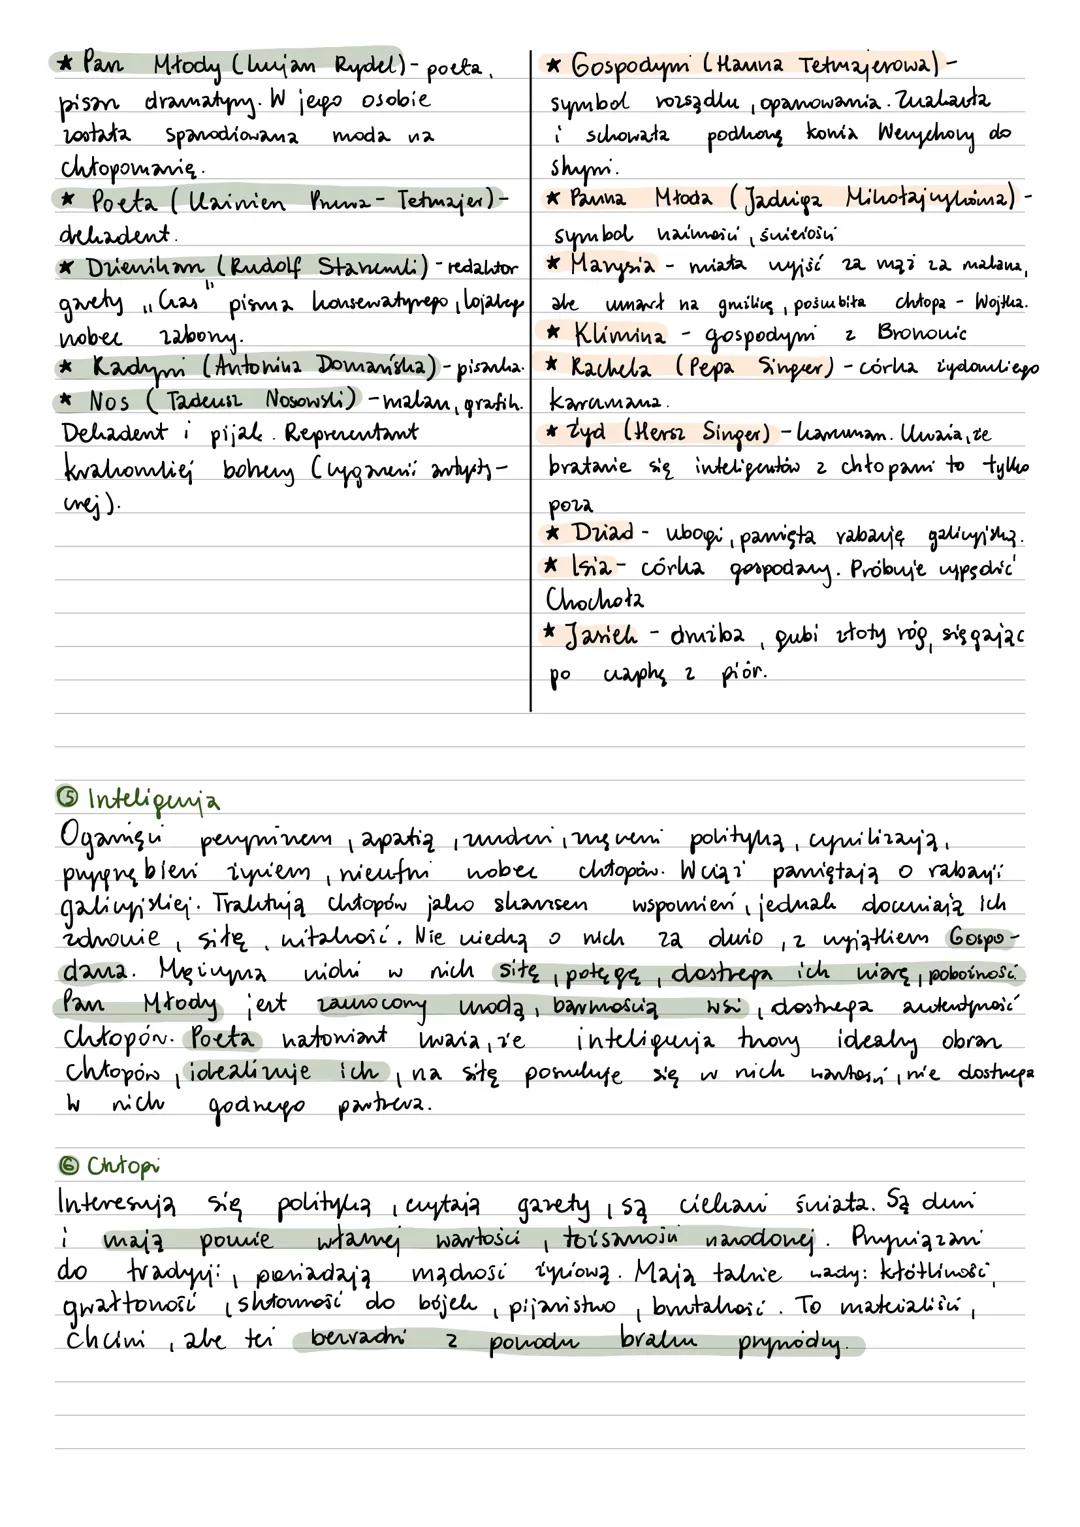 ★ Pan Młody (Lucjan Rydel) - poeta,
pisarz dramatyczny. W jego osobie
została sparodiowana moda na
chłopomanię.
★ Poeta (Kazimierz Przerwa-Tetmajer) -
dekadent.
★ Dziennikarz (Rudolf Starzewski) - redaktor
gazety „Czas" pisma konserwatywnego, lojalnego
wobec zaborcy.
★ Radczyni (Antonina Domańska) - pisarka.
★ Nos (Tadeusz Nosowski) - malarz, grafik.
Dekadent i pijak. Reprezentant
krakowskiej bohemy (cyganerii artysty-
cznej).
★ Gospodyni (Hanna Tetmajerowa) -
symbol rozsądku, opanowania. Znalazła
i schowała podkowę konia Wernyhory do
skrzyni.
★ Panna Młoda (Jadwiga Mikołajczykówna) -
symbol naiwności, świeżości
★ Marysia - miała wyjść za mąż za malarza,
ale umarł na gruźlicę, poślubiła chłopa - Wojtka.
★ Klimina - gospodyni z Bronowic
★ Rachela (Pepa Singer) - córka żydowskiego
karczmarza.
★ Żyd (Hersz Singer) - karczmarz. Uważa, że
bratanie się inteligentów z chłopami to tylko
poza
★ Dziad - ubogi, pamięta rabację galicyjską.
★ Isia - córka gospodarzy. Próbuje wypędzić
Chochoła
★ Jasiek - drużba, gubi złoty róg, sięgając
po czapkę z piór.
⑤ Inteligencja
Ogarnięci pesymizmem, apatią, znudzeni, zmęczeni polityką, cywilizacją,
przygnębieni życiem, nieufni wobec chłopów. Wciąż pamiętają o rabacji
galicyjskiej. Traktują chłopów jako skansen wspomnień, jednak doceniają ich
zdrowie, siłę, witalność. Nie wiedzą o nich za dużo, z wyjątkiem Gospo-
darza. Mężczyzna widzi w nich siłę, potęgę, dostrzega ich wiarę, pobożność.
Pan Młody jest zauroczony urodą, barwnością wsi, dostrzega autentyczność
chłopów. Poeta natomiast uważa, że inteligencja tworzy idealny obraz
chłopów, idealizuje ich, na siłę poszukuje się w nich wartości, nie dostrzega
w nich godnego partnera.
⑥ Chłopi
Interesują się polityką, czytają gazety, są ciekawi świata. Są dumni
i mają poczucie własnej wartości, tożsamości narodowej. Przywiązani
do tradycji, posiadają mądrość życiową. Mają także wady: kłótliwość,
gwałtowność, skłonność do bójek, pijaństwo, brutalność. To materialiści,
chciwi, ale też bezradni z powodu braku przywódcy.